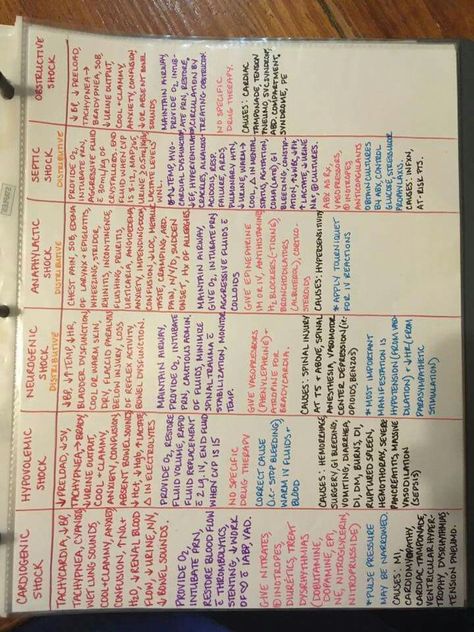 CARDIOGENIC
SHOCK
TACHYCARDIA, ↓BP,
TACHYPNEA, CYANOSIS
WET LUNG SOUNDS
COOL+CLAMMY, ANXIETY,
CONFUSION, ↑NA+
H2O, ↓RENAL BLOOD
FLOW, ↓URINE, N/V,
↓BOWEL SOUNDS.
PROVIDE O2,
INTUBATE PRN.
RESTORE BLOOD FLOW
C̄ THROMBOLYTICS,
STENTING, ↓WORK
OF C̄ IABP, VAD.
GIVE NITRATES
INOTROPES
DIURETICS, TREAT
DYSRHYTHMIAS
(DOBUTAMINE,
DOPAMINE, EPI,
NE, NITROGLYCERIN,
NITROPRUSSIDE)
*PULSE PRESSURE
MAY BE NARROWED.
CAUSES: MI,
CARDIOMYOPATHY
CARDIAC TAMPONADE,
VENTRICULAR HYPER-
TROPHY, DYSRHYTHMIAS
TENSION PNEUMO.
HYPOVOLEMIC
SHOCK
↓PRELOAD, ↓SV,
TACHYPNEA→BRADY
↓URINE OUTPUT,
COOL+CLAMMY,
ANXIETY, CONFUSION
ABSENT BOWEL SOUNDS
↓Hct, ↓Hgb, ↑LACTATE,
Δ IN ELECTROLYTES
PROVIDE O2, RESTORE
FLUID VOLUME, RAPID
FLUID REPLACEMENT
C̄ 2 LG. IV, END FLUID
WHEN CVP IS 15
NO SPECIFIC
DRUG THERAPY
CORRECT CAUSE
(i.e. STOP BLEEDING)
WARM IV FLUIDS
CAUSES: HEMORRHAGE
SURGERY, GI BLEEDING,
VOMITING, DIARRHEA,
DI, DM, BURNS, DI,
RUPTURED SPLEEN,
HEMOTHORAX, SEVERE
PANCREATITIS, MASSIVE
VASODILATION
(SEPSIS)
NEUROGENIC
SHOCK
DISTRIBUTIVE
↓BP, ↓TEMP, ↓HR,
BLADDER DYSFUNCTION
COOL OR WARM SKIN,
DRY, FLACCID PARALYSIS
BELOW INJURY, LOSS
OF REFLEX ACTIVITY,
BOWEL DYSFUNCTION.
MAINTAIN AIRWAY,
PROVIDE O2, INTUBATE
PRN, CAUTIOUS ADMIN.
OF FLUIDS, MINIMIZE
SPINAL TRAUMA C̄
STABILIZATION, MONITOR
TEMP.
GIVE VASOPRESSORS
(PHENYLEPHRINE)+
ATROPINE FOR
BRADYCARDIA.
CAUSES: SPINAL INJURY
AT T5 + ABOVE, SPINAL
ANESTHESIA, VASOMOTOR
CENTER DEPRESSION (i.e.
OPIOIDS, BENZOS)
*MOST IMPORTANT
MANIFESTATION IS
HYPOTENSION (FROM VASO-
DILATION) + ↓HR (FROM
PARASYMPATHETIC
STIMULATION)
ANAPHYLACTIC
SHOCK
DISTRIBUTIVE
CHEST PAIN, SOB, EDEMA
OF LARYNX + EPIGLOTTIS,
WHEEZING, STRIDOR,
RHINITIS, INCONTINENCE,
FLUSHING, PRURITIS,
URTICARIA, ANGIOEDEMA
ANXIETY, IMPENDING DOOM,
CONFUSION, ↓LOC, METALLIC
TASTE, CRAMPING, ABD.
PAIN, N/V/D, SUDDEN
ONSET, HX OF ALLERGIES
MAINTAIN AIRWAY,
GIVE O2, INTUBATE PRN
AGGRESSIVE FLUIDS C̄
COLLOIDS
GIVE EPINEPHRINE
IM OR IV, ANTIHISTAMINE,
H2 BLOCKERS,
BRONCHODILATORS
(ALBUTEROL), CORTICO-
STEROIDS.
CAUSES: HYPERSENSITIVITY
*APPLY TOURNIQUET
FOR IV REACTIONS
SEPTIC
SHOCK
DISTRIBUTIVE
PROVIDE O2,
INTUBATE PRN,
AGGRESSIVE FLUID
C̄ 30mL/kg OF
CRYSTALLOIDS. END
FLUID WHEN CVP
IS 8-12, MAP >65,
LACTATE LEVELS
WNL.
CRACKLES, ALKALOSIS→
ACIDOSIS, RESP.
FAILURE, ARDS,
PULMONARY HTN,
↓URINE, WARM→
COOL, Δ MENTAL
STATUS, AGITATION,
COMA (LATE), GI
BLEEDING,
↑LACTATE, ↓URINE
Na+, ⊕CULTURES.
ABX AS RX,
VASOPRESSORS,
INOTROPES
ANTICOAGULANTS
OBTAIN CULTURES
B4 ABX, CONTROL
GLUCOSE, STRESS ULCER
PROPHYLAXIS.
CAUSES: INFXN,
AT-RISK PTS.
OBSTRUCTIVE
SHOCK
↓BP, ↓PRELOAD,
TACHYPNEA→
BRADYPNEA, SOB,
↓URINE OUTPUT,
COOL+CLAMMY,
ANXIETY, CONFUSION
↓ OR ABSENT BOWEL
SOUNDS
MAINTAIN AIRWAY,
PROVIDE O2, INTUB-
ATE PRN, RESTORE
CIRCULATION BY
TREATING OBSTRUCTION.
NO SPECIFIC
DRUG THERAPY.
CAUSES: CARDIAC
TAMPONADE, TENSION
PNEUMO, SVC SYNDROME,
ABD. COMPARTMENT
SYNDROME, PE